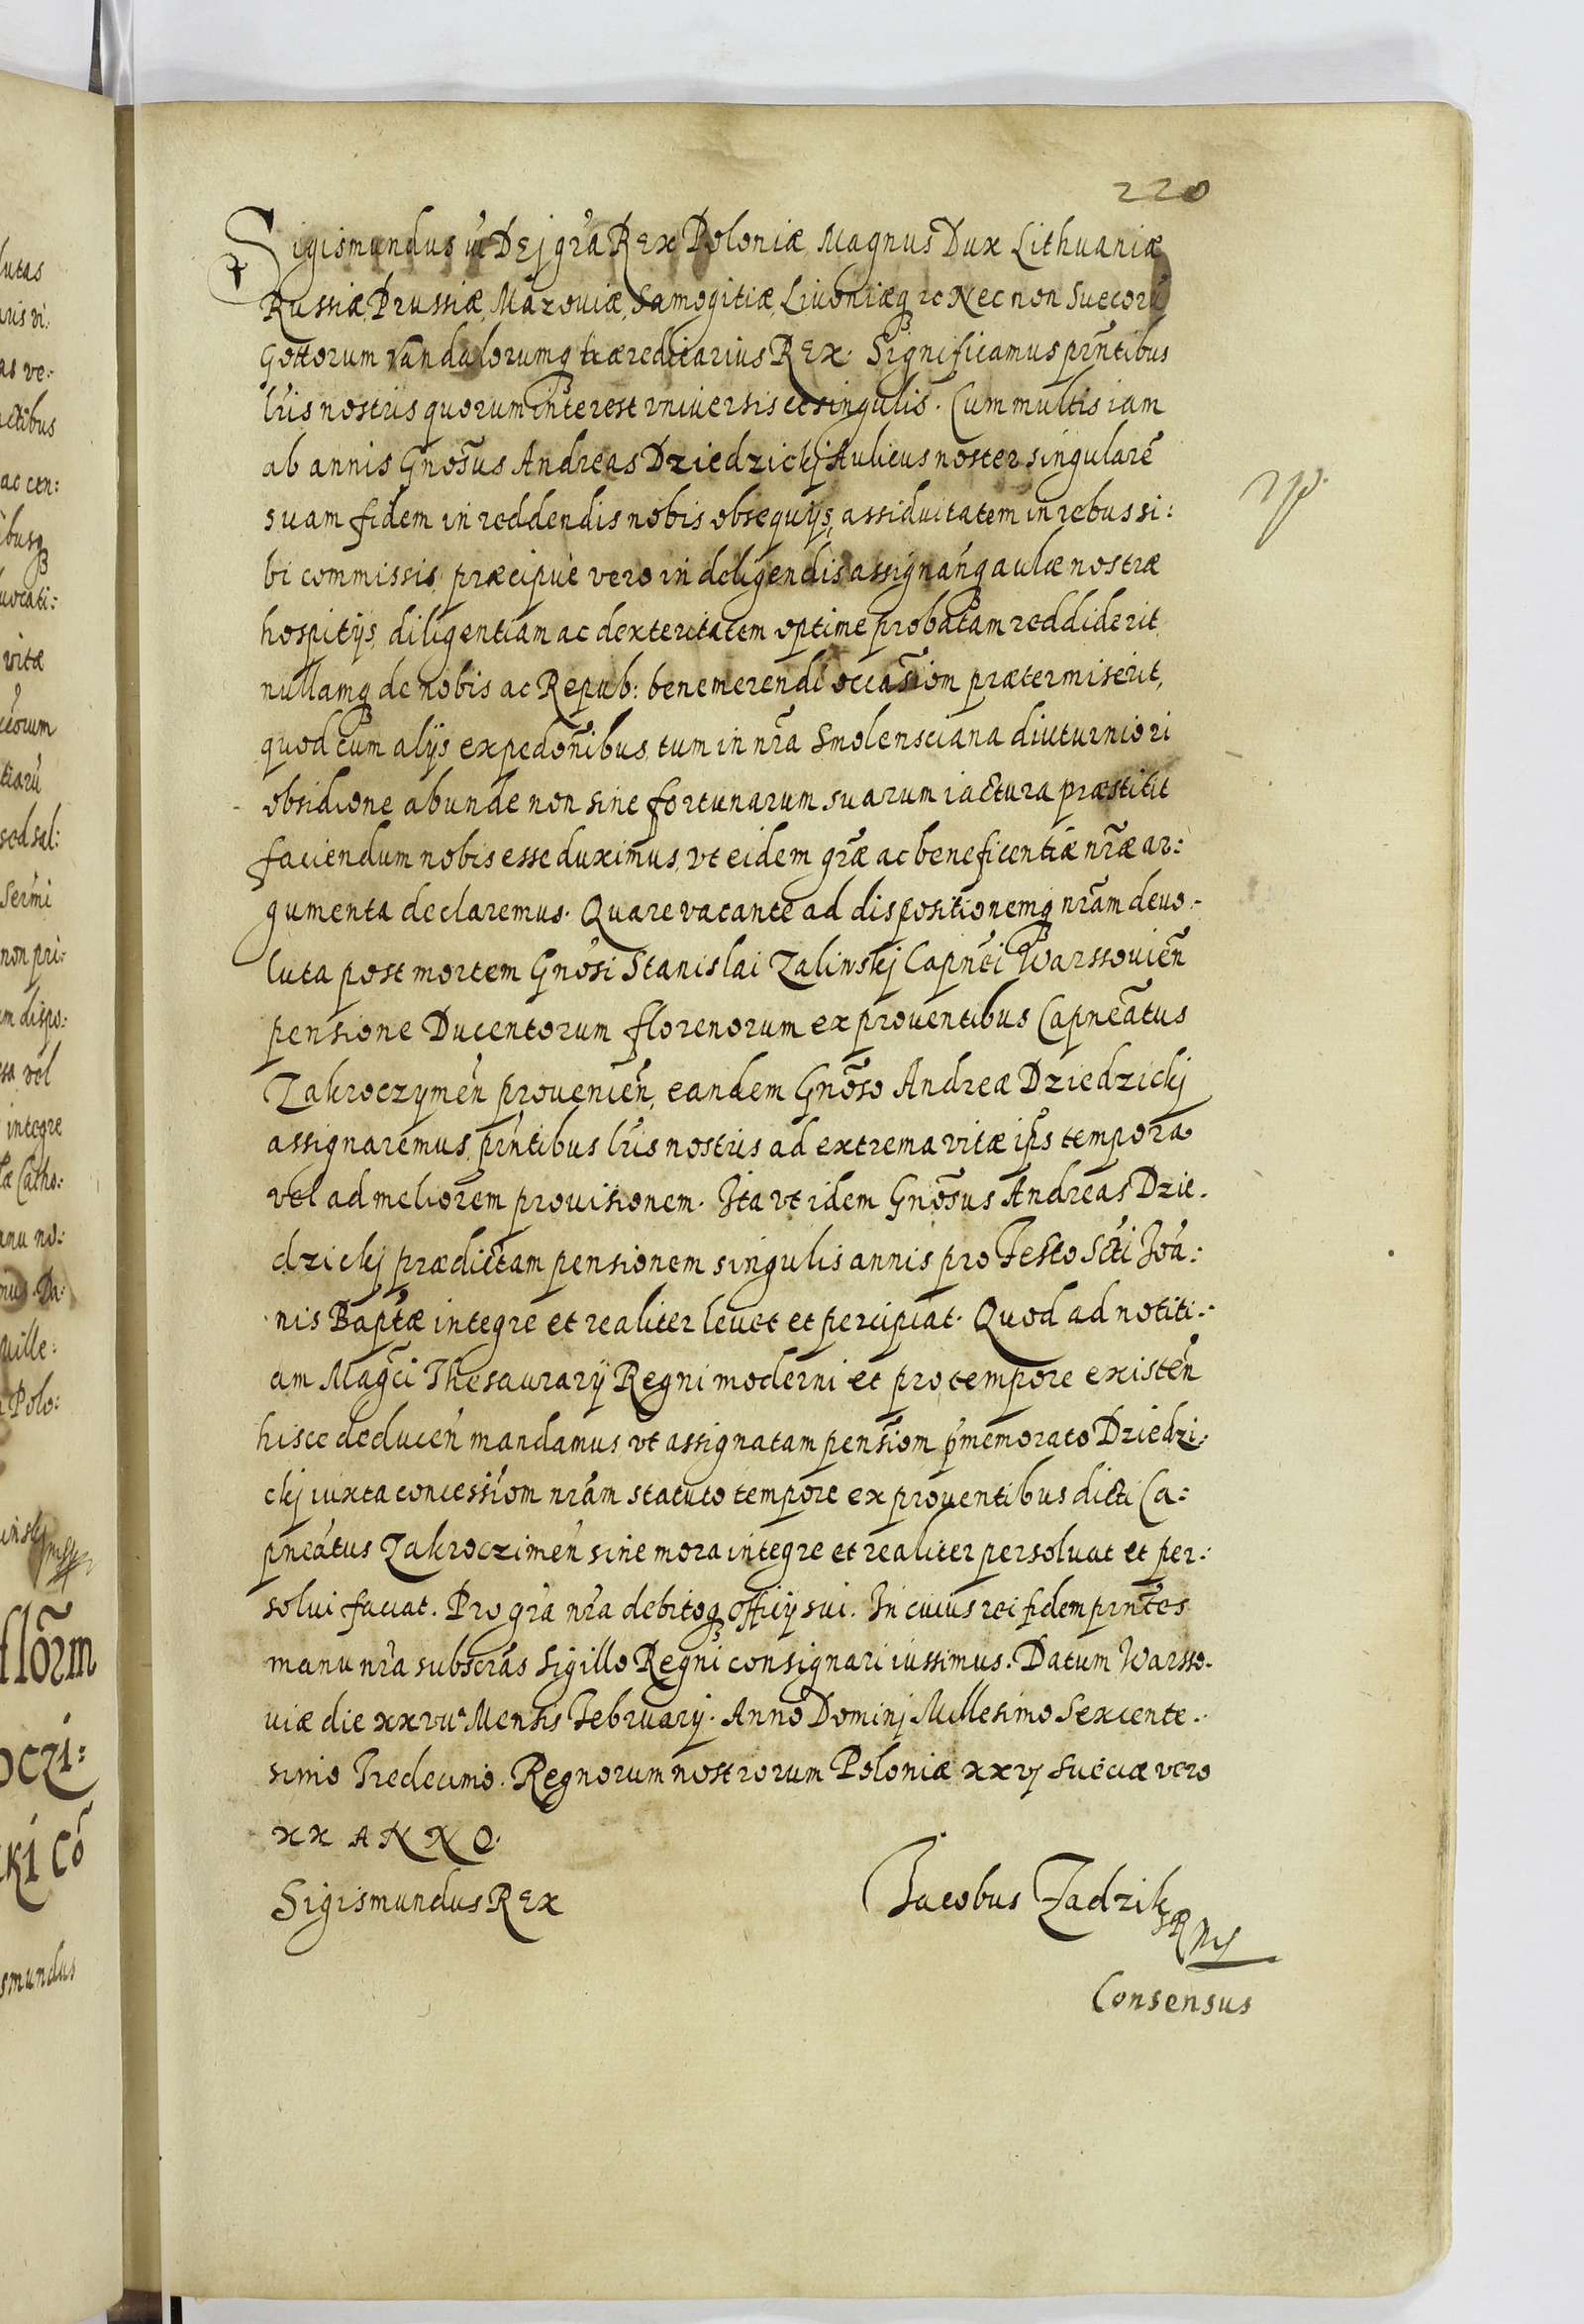 220
Sigismundus iii DEj gr̃a REx Poloniæ Magnus Dux Lithuaniæ
Russiæ, Prussiæ, Mazoviæ, Samogitiæ, Livoniæq̃ zc Nec non Suecorũ
Gottorum Vandalorumq̃ hæreditarius REx. Significamus prñtibus
lr̃is nostris quorum interest vniversis et singulis. Cum multis iam
ab annis Gnõsus Andreas Dziedzickj Aulicus noster singularẽ
suam fidem in reddendis nobis obsequijs, assiduitatem in rebus si:
bi commissis, præcipue vero in deligendis assignañq̃ aulæ nostræ
hospitijs, diligentiam ac dexteritatem optime probatam reddiderit,
nullamq̃ de nobis ac Repub: benemerendi occasiom̃ prætermiserit,
quod cum alijs expedoñibus, tum in nr̃a Smolensciana diuturniori
obsidione abunde non sine fortunarum suarum iactura præstitit
faciendum nobis esse duximus, vt eidem gr̃æ ac beneficentiæ nr̃æ ar:
gumenta declaremus. Quare vacante ad dispositionemq̃ nr̃am devo:
luta post mortem Gnõsi Stanislai Zalinskj Capnẽi Warssovień
pensione Ducentorum florenorum ex proventibus Capneãtus
Zakroczymeń provenień, eandem Gnõso Andreæ Dziedzickj
assignaremus, prñtibus lr̃is nostris ad extrema vitæ ips̃ tempora
vel ad meliorem provisionem. Ita vt idem Gnõsus Andreas Dzie.
dzickj prædictam pensionem singulis annis pro Festo Scti Joã:
nis Baptæ integre et realiter levet et percipiat. Quod ad notiti:
am Magc̃i Thesaurarij Regni moderni et pro tempore existeń
hisce deduceń mandamus vt assignatam pensiom̃ p̃memorato Dziedzi:
ckj iuxta concessiom̃ nr̃am statuto tempore ex proventibus dicti Ca:
pneãtus Zakroczimeń sine mora integre et realiter persolvat et per:
solvi faciat. Pro gr̃a nr̃a debitoq̃ officij sui. In cuius rei fidem prñtes
manu nr̃a subscr̃as Sigillo Regni consignari iussimus. Datum Warsso.
viæ die xxviia Mensis Februarij. Anno Dominj Millesimo Sexcente.
simo Tredecimo. Regnorum nostrorum Poloniæ xxvj Sueciæ vero
xx ANNO.
Sigismundus REx
Jacobus Zadzik
SR Ms
Consensus